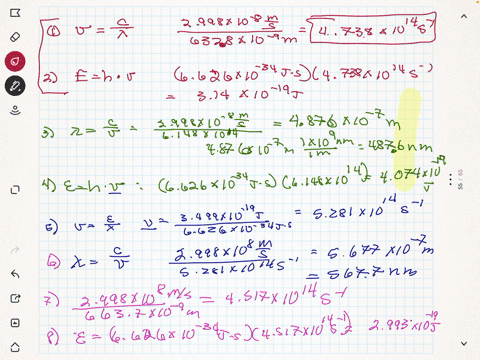 1) ν = c/λ 2.998 x 10⁻⁸ m/s / 632.8 x 10⁻⁹ m = 4.738 x 10¹⁴ s⁻¹
2) E = h · ν (6.626 x 10⁻³⁴ J·s)(4.738 x 10¹⁴ s⁻¹)
= 3.14 x 10⁻¹⁹ J
3) λ = c/ν = 2.998 x 10⁻⁸ m/s / 6.148 x 10¹⁴ = 4.876 x 10⁻⁷ m
4.876 x 10⁻⁷ m | 1 x 10⁹ nm / 1 m = 487.6 nm
4) E = h · ν : (6.626 x 10⁻³⁴ J·s)(6.148 x 10¹⁴) = 4.074 x 10⁻¹⁹ J
5) ν = E/λ ν = 3.499 x 10⁻¹⁹ J / 6.626 x 10⁻³⁴ J·s = 5.281 x 10¹⁴ s⁻¹
6) λ = c/ν 2.998 x 10⁸ m/s / 5.281 x 10¹⁴ s⁻¹ = 5.677 x 10⁻⁷ m
= 567.7 nm
7) 2.998 x 10⁸ m/s / 663.7 x 10⁻⁹ m = 4.517 x 10¹⁴ s⁻¹
8) E = (6.626 x 10⁻³⁴ J·s)(4.517 x 10¹⁴ s⁻¹) = 2.993 x 10⁻¹⁹ J